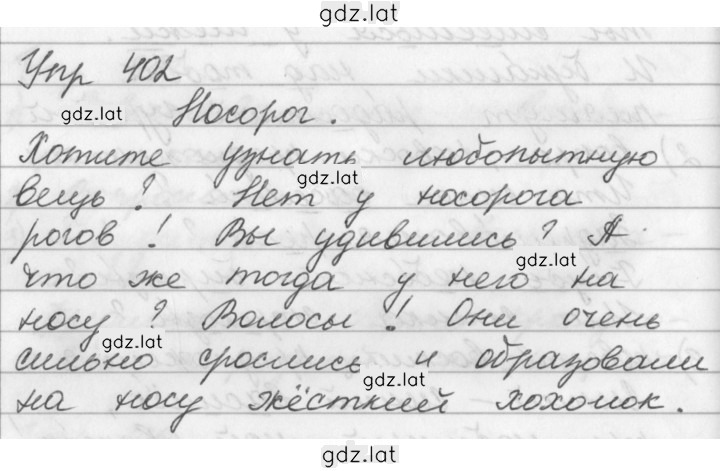 gdz.lat
Упр 402
gdz.lat
Носорог.
Хотите узнать любопытную
gdz.lat
вещь? Нет у носорога
рогов! Вы удивились? А
gdz.lat
что же тогда у него на
носу? Волосы! Они очень
сильно срослись и образовали
gdz.lat
на носу жёсткий хохолок.
gdz.lat